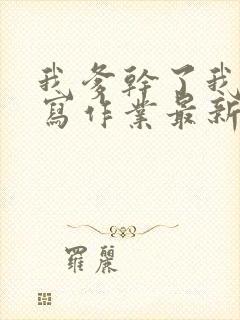 我爹幹了我
寫作業最新
羅麗